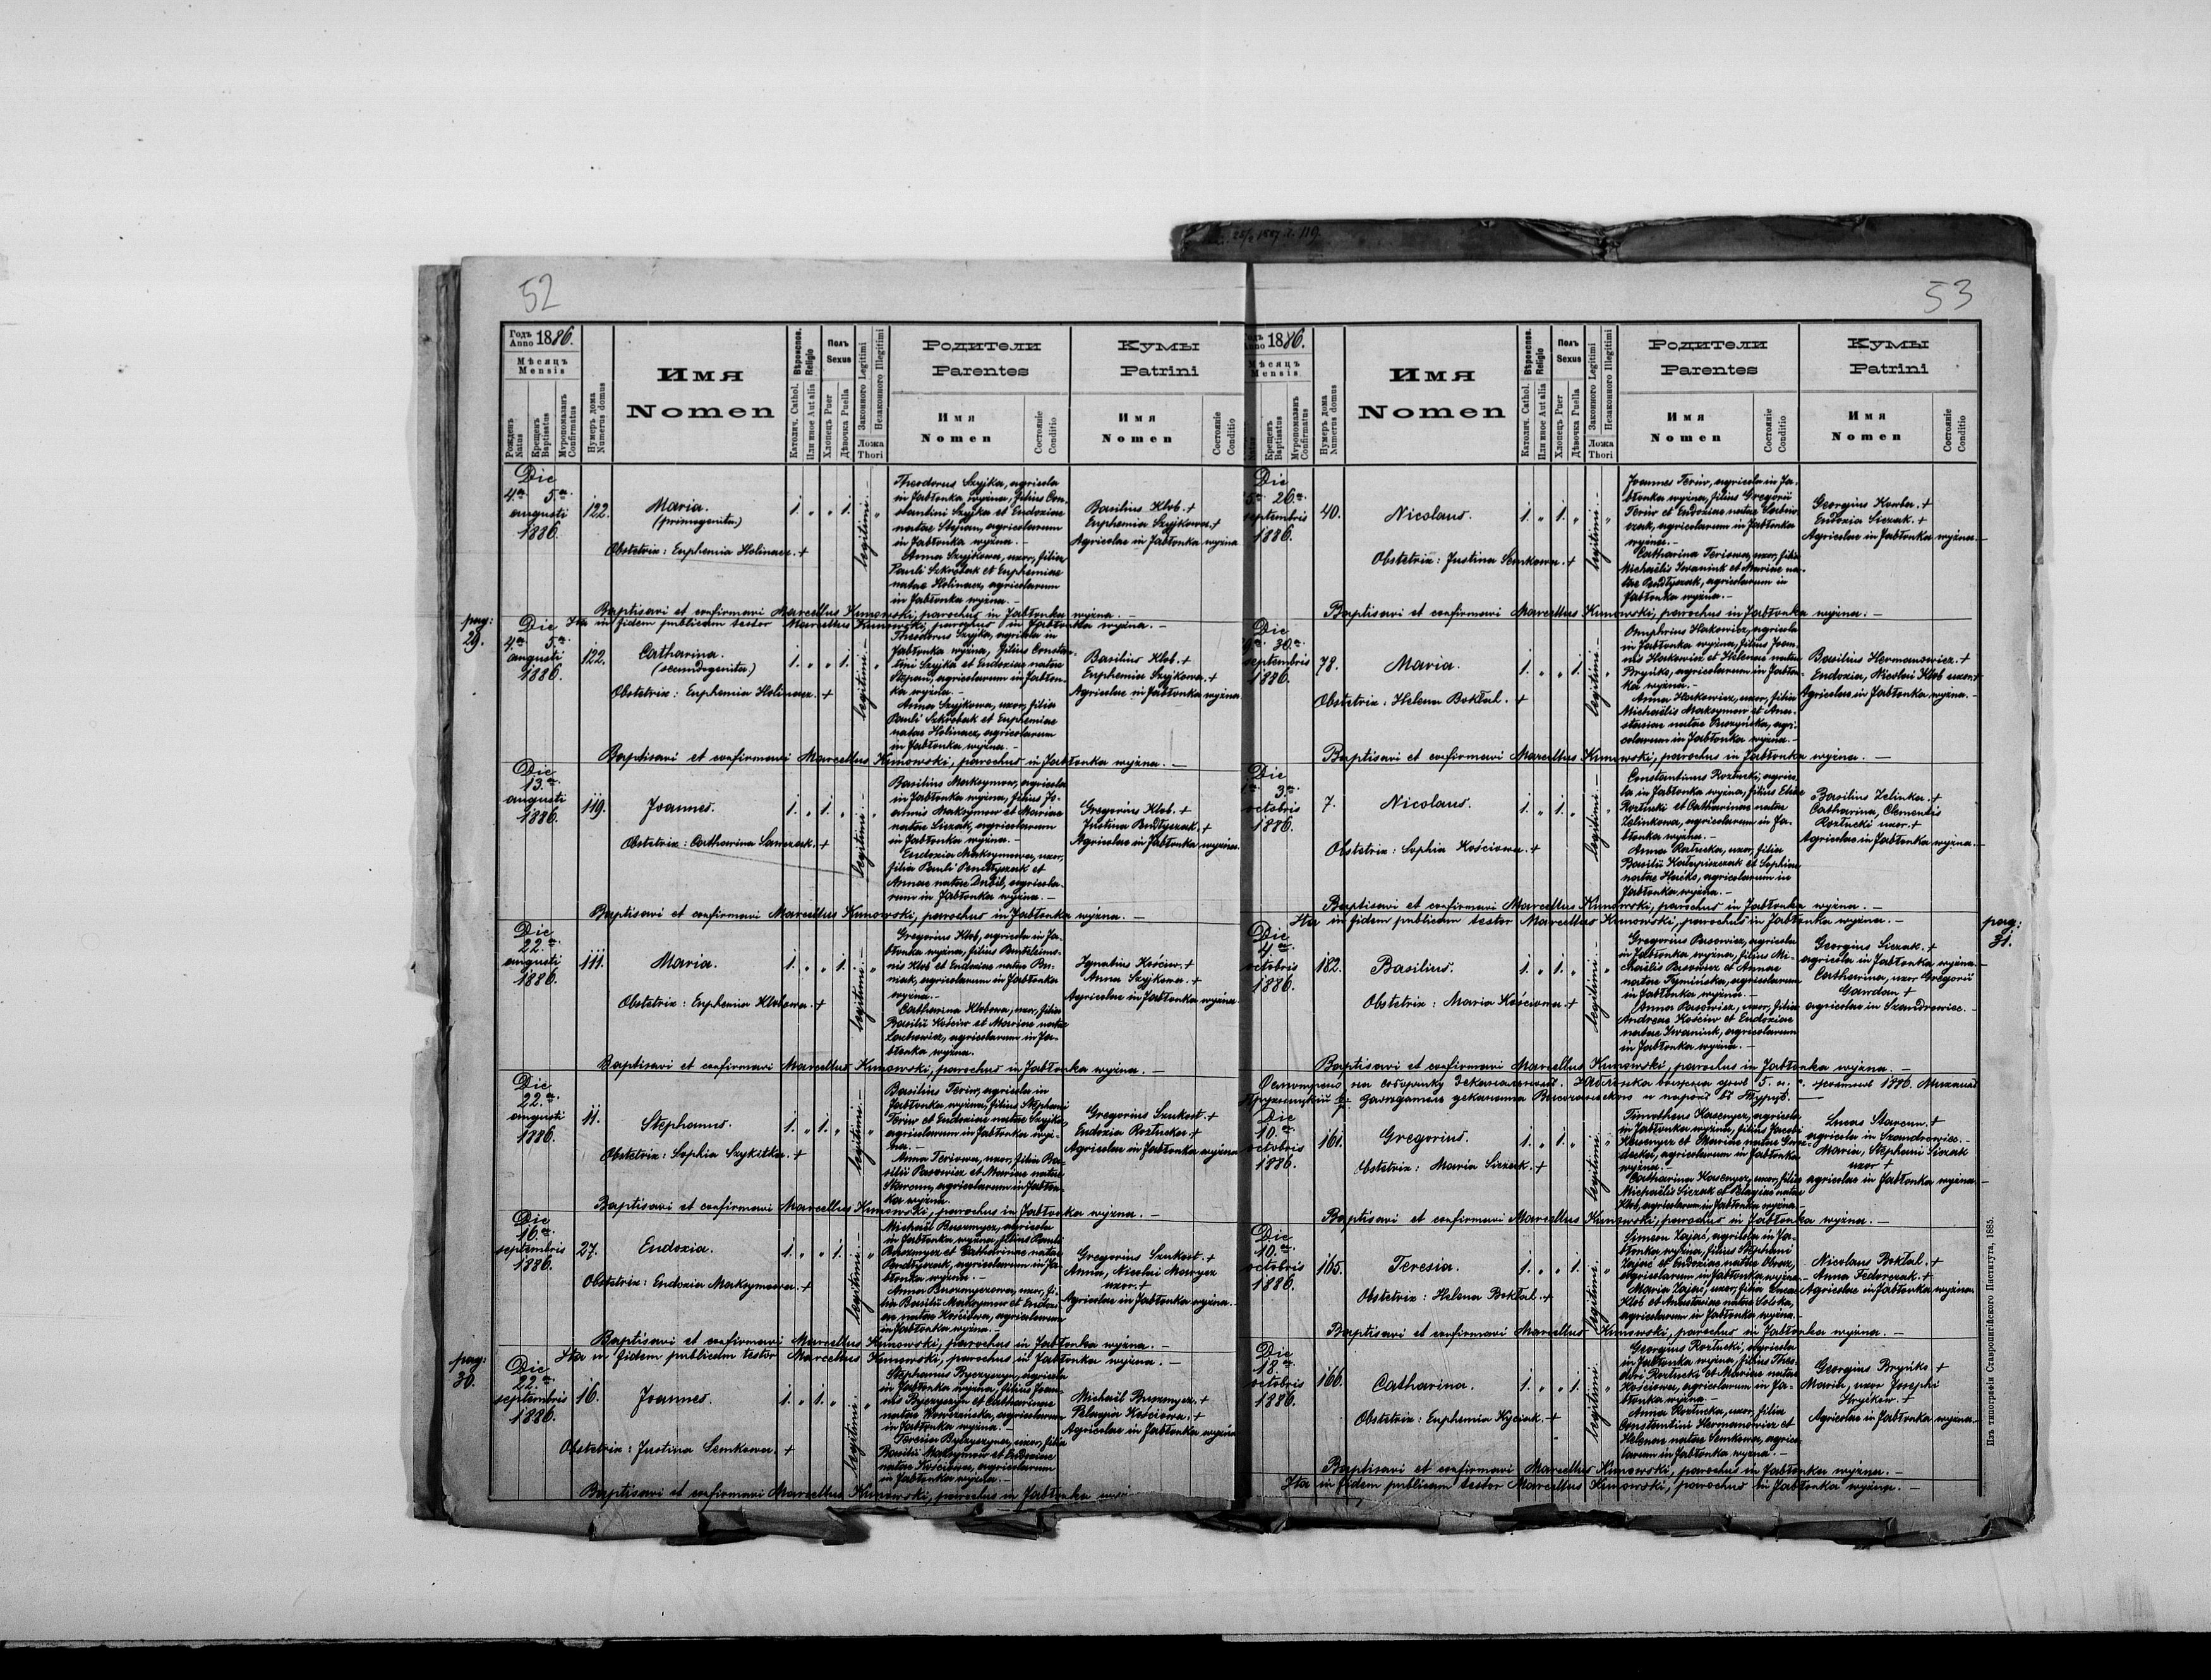 25/2 1887 d. 119.
52
Годъ Anno 1886.
Мѣсяцъ
Mensis
Рожденъ Natus
Крещенъ Baptisatus
Мѵропомазанъ Confirmatus
Нумеръ дома Numerus domus
Имя
Nomen
Вѣроиспов. Religio
Католич. Cathol.
Или иное Aut alia
Полъ
Sexus
Хлопецъ Puer
Дѣвочка Puella
Законного Legitimi
Незаконного Illegitimi
Ложа
Thori
Родители
Parentes
Имя
Nomen
Состояніе
Conditio
Кумы
Patrini
Имя
Nomen
Состояніе
Conditio
Die
4.a 5.a
augusti
1886.
122.
Maria.
(primogenita)
Obstetrix: Euphemia Holinacz. +
1. „ „ 1.
legitimi. –
Theodorus Szyjka, agricola
in Jabłonka wyżna, filius Con-
stantini Szyjka et Eudoxiae
natae Stepan, agricolarum
in Jabłonka wyżna. –
Anna Szyjkowa, uxor, filia
Pauli Szkrobak et Euphemiae
natae Holinacz, agricolarum
in Jabłonka wyżna. –
Basilius Kłob. +
Euphemia Szyjkowa. +
Agricolae in Jabłonka wyżna
Baptisavi et confirmavi Marcellus Kunowski, parochus in Jabłonka wyżna. –
Ita in fidem publicam testor Marcellus Kunowski, parochus in Jabłonka wyżna. –
pag:
29.
Die
4.a 5.a
augusti
1886.
122.
Catharina.
(secundogenita)
Obstetrix: Euphemia Holinacz. +
1. „ „ 1.
legitimi. –
Theodorus Szyjka, agricola in
Jabłonka wyżna, filius Constan-
tini Szyjka et Eudoxiae natae
Stepan, agricolarum in Jabłon-
ka wyżna. –
Anna Szyjkowa, uxor, filia
Pauli Szkrobak et Euphemiae
natae Holinacz, agricolarum
in Jabłonka wyżna. –
Basilius Kłob. +
Euphemia Szyjkowa. +
Agricolae in Jabłonka wyżna.
Baptisavi et confirmavi Marcellus Kunowski, parochus in Jabłonka wyżna. –
Die
13.a
augusti
1886.
119.
Joannes.
Obstetrix: Catharina Sawczak. +
1. „ 1. „
legitimi. –
Basilius Maksymow, agricola
in Jabłonka wyżna, filius Jo-
annis Maksymow et Mariae
natae Siczak, agricolarum
in Jabłonka wyżna. –
Eudoxia Maksymowa, uxor,
filia Pauli Pendłyszak et
Annae natae Dubil, agricola-
rum in Jabłonka wyżna. –
Gregorius Kłob. +
Justina Pendłyszak. +
Agricolae in Jabłonka wyżna.
Baptisavi et confirmavi Marcellus Kunowski, parochus in Jabłonka wyżna. –
Die
22.a
augusti
1886.
111.
Maria.
Obstetrix: Euphemia Kłobowa. +
1. „ „ 1.
legitimi. –
Gregorius Kłob, agricola in Ja-
błonka wyżna, filius Panteleimo-
nis Kłob et Eudoxiae natae
agricolarum in Jabłonka
wyżna. –
Catharina Kłobowa, uxor, filia
Basilii Kościw et Mariae natae
agricolarum in Ja-
błonka wyżna.
Ignatius Kościw. +
Anna Szyjkowa. +
Agricolae in Jabłonka wyżna
Baptisavi et confirmavi Marcellus Kunowski, parochus in Jabłonka wyżna. –
Die
22.a
augusti
1886.
11.
Stephanus.
Obstetrix: Sophia Szykitka. +
1. „ 1. „
legitimi. –
Basilius Teriw, agricola in
Jabłonka wyżna, filius Stephani
Teriw et Eudoxiae natae Szyjka,
agricolarum in Jabłonka wyż-
na. –
Anna Teriowa, uxor, filia Ba-
silii Pasowicz et Mariae natae
Starcun, agricolarum in Jabłon-
ka wyżna.
Gregorius Szukost. +
Eudoxia Rozłucka. +
Agricolae in Jabłonka wyżna
Baptisavi et confirmavi Marcellus Kunowski, parochus in Jabłonka wyżna. –
Die
16.a
septembris
1886.
27.
Eudoxia.
Obstetrix: Eudoxia Maksymowa. +
1. „ „ 1.
legitimi. –
Michaël Buszmycz, agricola
in Jabłonka wyżna, filius Pauli
Buszmycz et Catharinae natae
Pendłyszak, agricolarum in Ja-
błonka wyżna. –
Anna Buszmyczowa, uxor, fi-
lia Basilii Maksymow et Eudoxi-
ae natae Kościowa, agricolarum
in Jabłonka wyżna. –
Gregorius Szukost. +
Anna, Nicolai Mawycz
uxor. +
Agricolae in Jabłonka wyżna.
Baptisavi et confirmavi Marcellus Kunowski, parochus in Jabłonka wyżna. –
Ita in fidem publicam testor Marcellus Kunowski, parochus in Jabłonka wyżna. –
pag:
30.
Die
22.a
septembris
1886.
16.
Joannes.
Obstetrix: Justina Semkowa. +
1. „ 1. „
legitimi. –
Stephanus agricola
in Jabłonka wyżna, filius Joan-
nis et Catharinae
natae agricolarum
in Jabłonka wyżna. –
Teresia uxor, filia
Basilii Maksymow et Eudoxiae
natae Kościowa, agricolarum
in Jabłonka wyżna. –
Michaël Buszmycz. +
Pelagia Kościowa. +
Agricolae in Jabłonka wyżna
Baptisavi et confirmavi Marcellus Kunowski, parochus in Jabłonka
53
Anno 1886.
Мѣсяцъ
Mensis
Крещенъ Baptisatus
Мѵропомазанъ Confirmatus
Нумеръ дома Numerus domus
Имя
Nomen
Вѣроиспов. Religio
Католич. Cathol.
Или иное Aut alia
Полъ
Sexus
Хлопецъ Puer
Дѣвочка Puella
Законного Legitimi
Незаконного Illegitimi
Ложа
Thori
Родители
Parentes
Имя
Nomen
Состояніе
Conditio
Кумы
Patrini
Имя
Nomen
Состояніе
Conditio
Die
5.a 26.a
septembris
1886.
40.
Nicolaus.
Obstetrix: Justina Semkowa. +
1. „ 1. „
legitimi. –
Joannes Teriw, agricola in Ja-
błonka wyżna, filius Gregorii
Teriw et Eudoxiae natae
agricolarum in Jabłonka
wyżna. –
Catharina Teriowa, uxor, filia
Michaëlis Iwanink et Mariae na-
tae Pendłyszak, agricolarum in
Jabłonka wyżna. –
Georgius +
Eudoxia Siczak. +
Agricolae in Jabłonka wyżna. –
Baptisavi et confirmavi Marcellus Kunowski, parochus in Jabłonka wyżna. –
Die
9.a 30.a
septembris
1886.
78.
Maria.
Obstetrix: Helena Boktał. +
1. „ „ 1.
legitimi. –
Onuphrius Hackowicz, agricola
in Jabłonka wyżna, filius Joan-
nis Hackowicz et Helenae natae
Bryńko, agricolarum in Jabłon-
ka wyżna. –
Anna Hackowicz, uxor, filia
Michaëlis Maksymow et Ana-
stasiae natae agri-
colarum in Jabłonka wyżna. –
Basilius Hermanowicz. +
Eudoxia, Nicolai Kłob uxor +
Agricolae in Jabłonka wyżna. –
Baptisavi et confirmavi Marcellus Kunowski, parochus in Jabłonka wyżna. –
Die
1.a 3.a
octobris
1886.
7.
Nicolaus.
Obstetrix: Sophia Kościowa. +
1. „ 1. „
legitimi. –
Constantinus Rozłucki, agrico-
la in Jabłonka wyżna, filius Eliae
Rozłucki et Catharinae natae
Zelinkowa, agricolarum in Ja-
błonka wyżna. –
Anna Rozłucka, uxor, filia
Basilii et Sophiae
natae Hacko, agricolarum in
Jabłonka wyżna. –
Basilius Zelinka. +
Catharina, Clementis
Rozłucki uxor. +
Agricolae in Jabłonka wyżna. –
Baptisavi et confirmavi Marcellus Kunowski, parochus in Jabłonka wyżna. –
Ita in fidem publicam testor Marcellus Kunowski, parochus in Jabłonka wyżna. –
pag:
31.
Die
4.a
octobris
1886.
182.
Basilius.
Obstetrix: Maria Kościowa. +
1. „ 1. „
legitimi. –
Gregorius Pasowicz, agricola
in Jabłonka wyżna, filius Mi-
chaëlis Pasowicz et Annae
natae Tymińska, agricolarum
in Jabłonka wyżna. –
Anna Pasowicz, uxor, filia
Andreae Kościw et Eudoxiae
natae Iwanink, agricolarum
in Jabłonka wyżna. –
Georgius Siczak. +
agricola in Jabłonka wyżna. –
Catharina, uxor Gregorii
Gawdan +
agricolae in Szandrowiec. –
Baptisavi et confirmavi Marcellus Kunowski, parochus in Jabłonka wyżna. –
на соборчику 1886.
Die
10.a
octobris
1886.
161.
Gregorius.
Obstetrix: Maria Siczak. +
1. „ 1. „
legitimi. –
Timotheus Hasenycz, agricola
in Jabłonka wyżna, filius Jacobi
Hasenycz et Mariae natae
agricolarum in Jabłonka
wyżna. –
Catharina Hasenycz, uxor, filia
Michaëlis Siczak et Pelagiae natae
Kłob, agricolarum in Jabłonka wyżna. –
Lucas Starcun. +
agricola in Szandrowiec. –
Maria, Stephani Siczak
uxor +
agricolae in Jabłonka wyżna. –
Baptisavi et confirmavi Marcellus Kunowski, parochus in Jabłonka wyżna. –
Die
10.a
octobris
1886.
165.
Teresia.
Obstetrix: Helena Boktał. +
1. „ „ 1.
legitimi. –
Simeon Zając, agricola in Ja-
błonka wyżna, filius Stephani
Zając et Eudoxiae natae
agricolarum in Jabłonka wyżna. –
Maria Zając, uxor, filia Lucae
Kłob et Anastasiae natae
agricolarum in Jabłonka wyżna. –
Nicolaus Boktał. +
Anna Fedorczak. +
Agricolae in Jabłonka wyżna.
Baptisavi et confirmavi Marcellus Kunowski, parochus in Jabłonka wyżna. –
Die
18.a
octobris
1886.
166.
Catharina.
Obstetrix: Euphemia Kyciak. +
1. „ „ 1.
legitimi. –
Georgius Rozłucki, agricola
in Jabłonka wyżna, filius Theo-
dori Rozłucki et Mariae natae
Kościowa, agricolarum in Ja-
błonka wyżna. –
Anna Rozłucka, uxor, filia
Constantini Hermanowicz et
Helenae natae Semkowa, agrico-
larum in Jabłonka wyżna. –
Georgius Bryńko +
Maria, uxor Josephi
Hryćkow. +
Agricolae in Jabłonka wyżna. –
Baptisavi et confirmavi Marcellus Kunowski, parochus in Jabłonka wyżna. –
Ita in fidem publicam testor Marcellus Kunowski, parochus in Jabłonka wyżna. –
Изъ типографіи Ставропигійского Института, 1885.